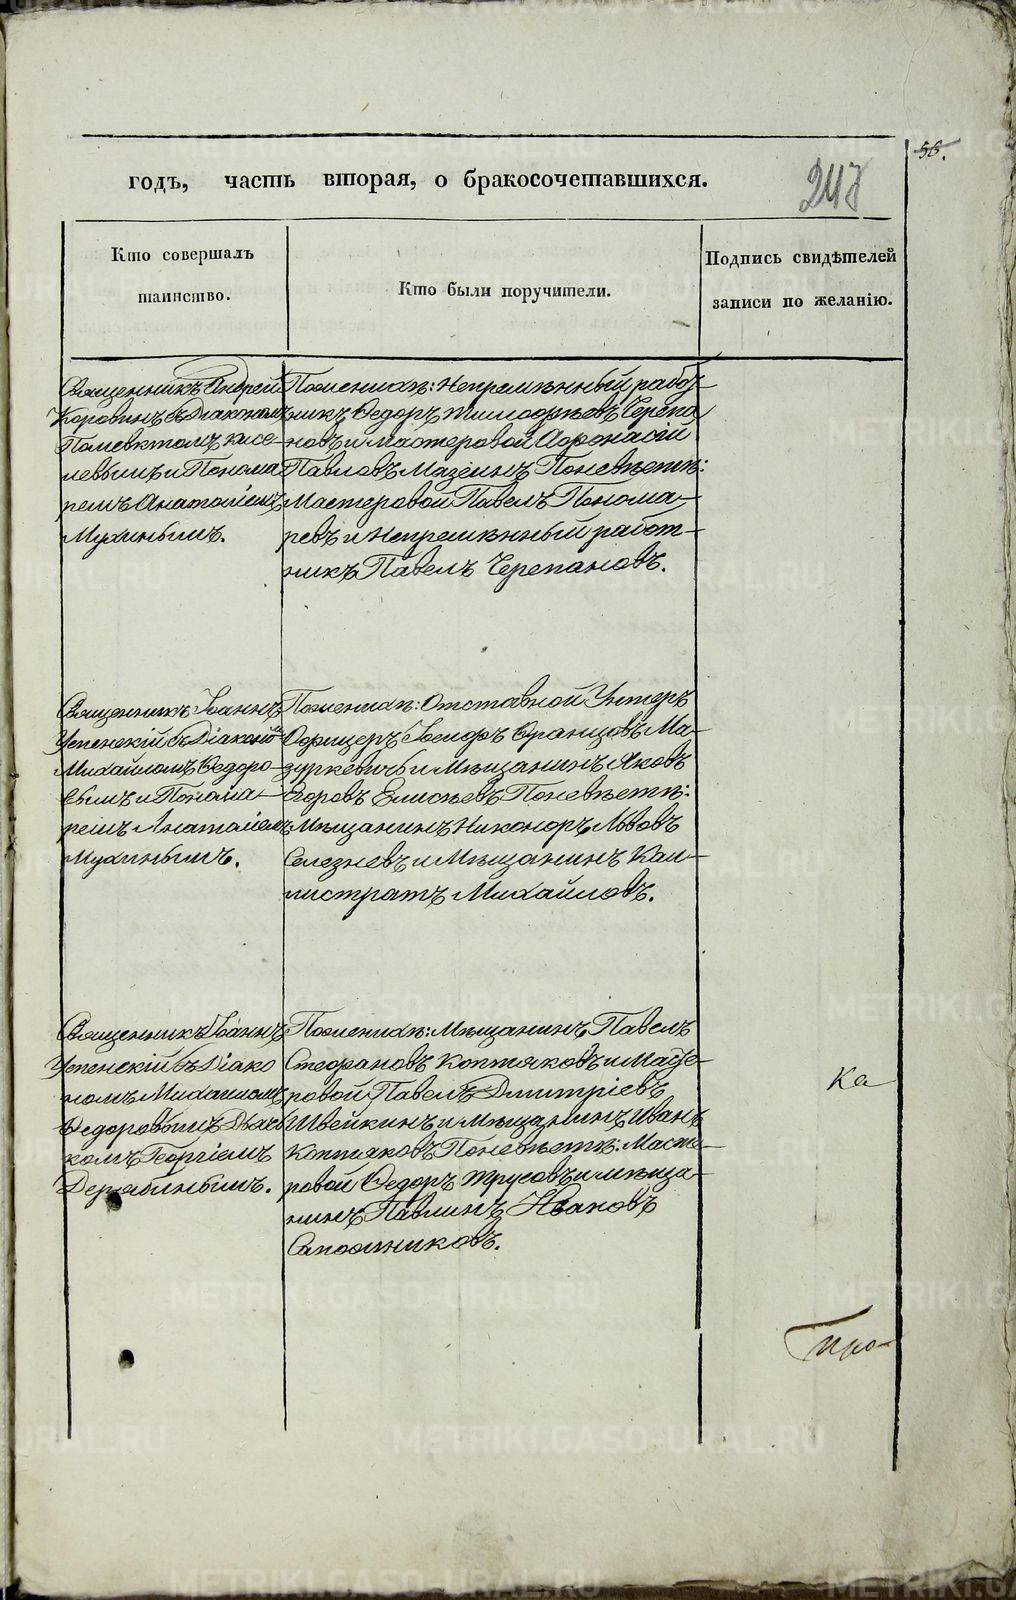 56.
годъ, часть вторая, о бракосочетавшихся.
247
Кто совершалъ
таинство.
Кто были поручители.
Подпись свидѣтелей
записи по желанію.
Священникъ Андрей
Коровинъ съ Діакономъ
Полиевктомъ Кисе-
левымъ и Понома
ремъ Анатоліемъ
Мухинымъ.
По женихѣ: Непремѣнный работ-
никъ Ѳедоръ Тимофѣевъ Черепа
новъ и мастеровой Афонасій
Павловъ Мазеинъ По невѣстѣ:
Мастеровой Павелъ Понома-
ревъ и Непремѣнный работ-
никъ Павелъ Черепановъ.
Священникъ Іоаннъ
Успенскій съ Діакономъ
Михайломъ Ѳедоро-
вымъ и Понома-
ремъ Анатоліемъ
Мухинымъ.
По женихѣ: Отставной Унтеръ
Офицеръ Іосифъ Францовъ Ма-
зуркевичъ и Мѣщанинъ Яковъ
Егоровъ Елисѣевъ По невѣстѣ:
Мѣщанинъ Никоноръ Львовъ
Селезневъ и Мѣщанинъ Кал-
листратъ Михайловъ.
Священникъ Іоаннъ
Успенскій съ Діако
номъ Михаиломъ
Ѳедоровымъ Дьяч
комъ Георгіемъ
Дерябинымъ.
По женихѣ: Мѣщанинъ Павелъ
Стефановъ Коптяковъ и Масте-
ровой Павелъ Дмитріевъ
Швейкинъ и Мѣщанинъ Иванъ
Коптяковъ По невѣстѣ: Масте-
ровой Ѳедоръ Трусовъ и мѣща-
нинъ Павлинъ Ивановъ
Сапожниковъ.
Ка
При-